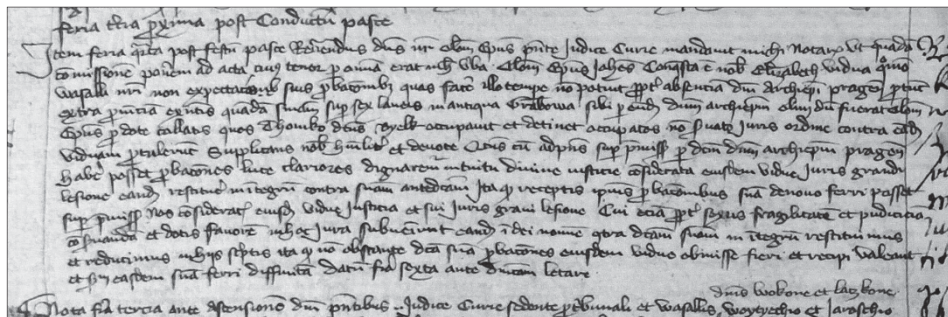 feria tercia proxima post Conductum pasce
Item feria quarta post festum pasce Reverendus dominus noster Olom Epus presente Judice Curie mandavit michi Notario ut quandam
comissionem ponerem ad acta cuius tenor per omnia erat in hec verba Olom Epus Johes Conquesta est nobis Elizabeth vidua quomodo
Vasalli nostri non expectatis suis probacionibus quas facere illo tempore non potuit propter absentiam domini Archiepi pragen
extra provinciam existentis quandam sententiam super sex laneis in antiqua Grabowa sibi per eundem dominum archiepm olim dum fuerat Olom
Epus pro dote collatis quos Thomko dictus occupavit et detinet occupatos non servato Juris ordine contra eandem
viduam protulerunt Supplicans nobis humiliter et devote Cum super premissis per dictum dominum archiepm pragen
habere posset probaciones luce clariores dignaremur intuitu divine iusticie considerata eiusdem vidue Juris grandi
lesione eandem restituere in integrum contra suam antedictam Ita quod receptis ipsius probacionibus sententia denovo ferri posset
super premissis Nos considerata eiusdem vidue Justicia et sui Juris gravi lesione Cui eciam propter sexus fragilitatem et pudiciciam
conservandam et dotis favorem in hoc Jura subveniunt eandem in dei nomine contra dictam sententiam in integrum restituimus
et reducimus in hys scriptis ita quod non obstante dicta sententia probaciones eiusdem vidue admisse fieri et recipi valeant
et secundum easdem sententia ferri diffinitiva datum feria sexta ante dominicam letare
dominis wokone et laczkone
Nota feria tercia ante ascensionem domini presentibus Judice Curie sedente pro tribunali et vasallis woytyechio et Jaroschio